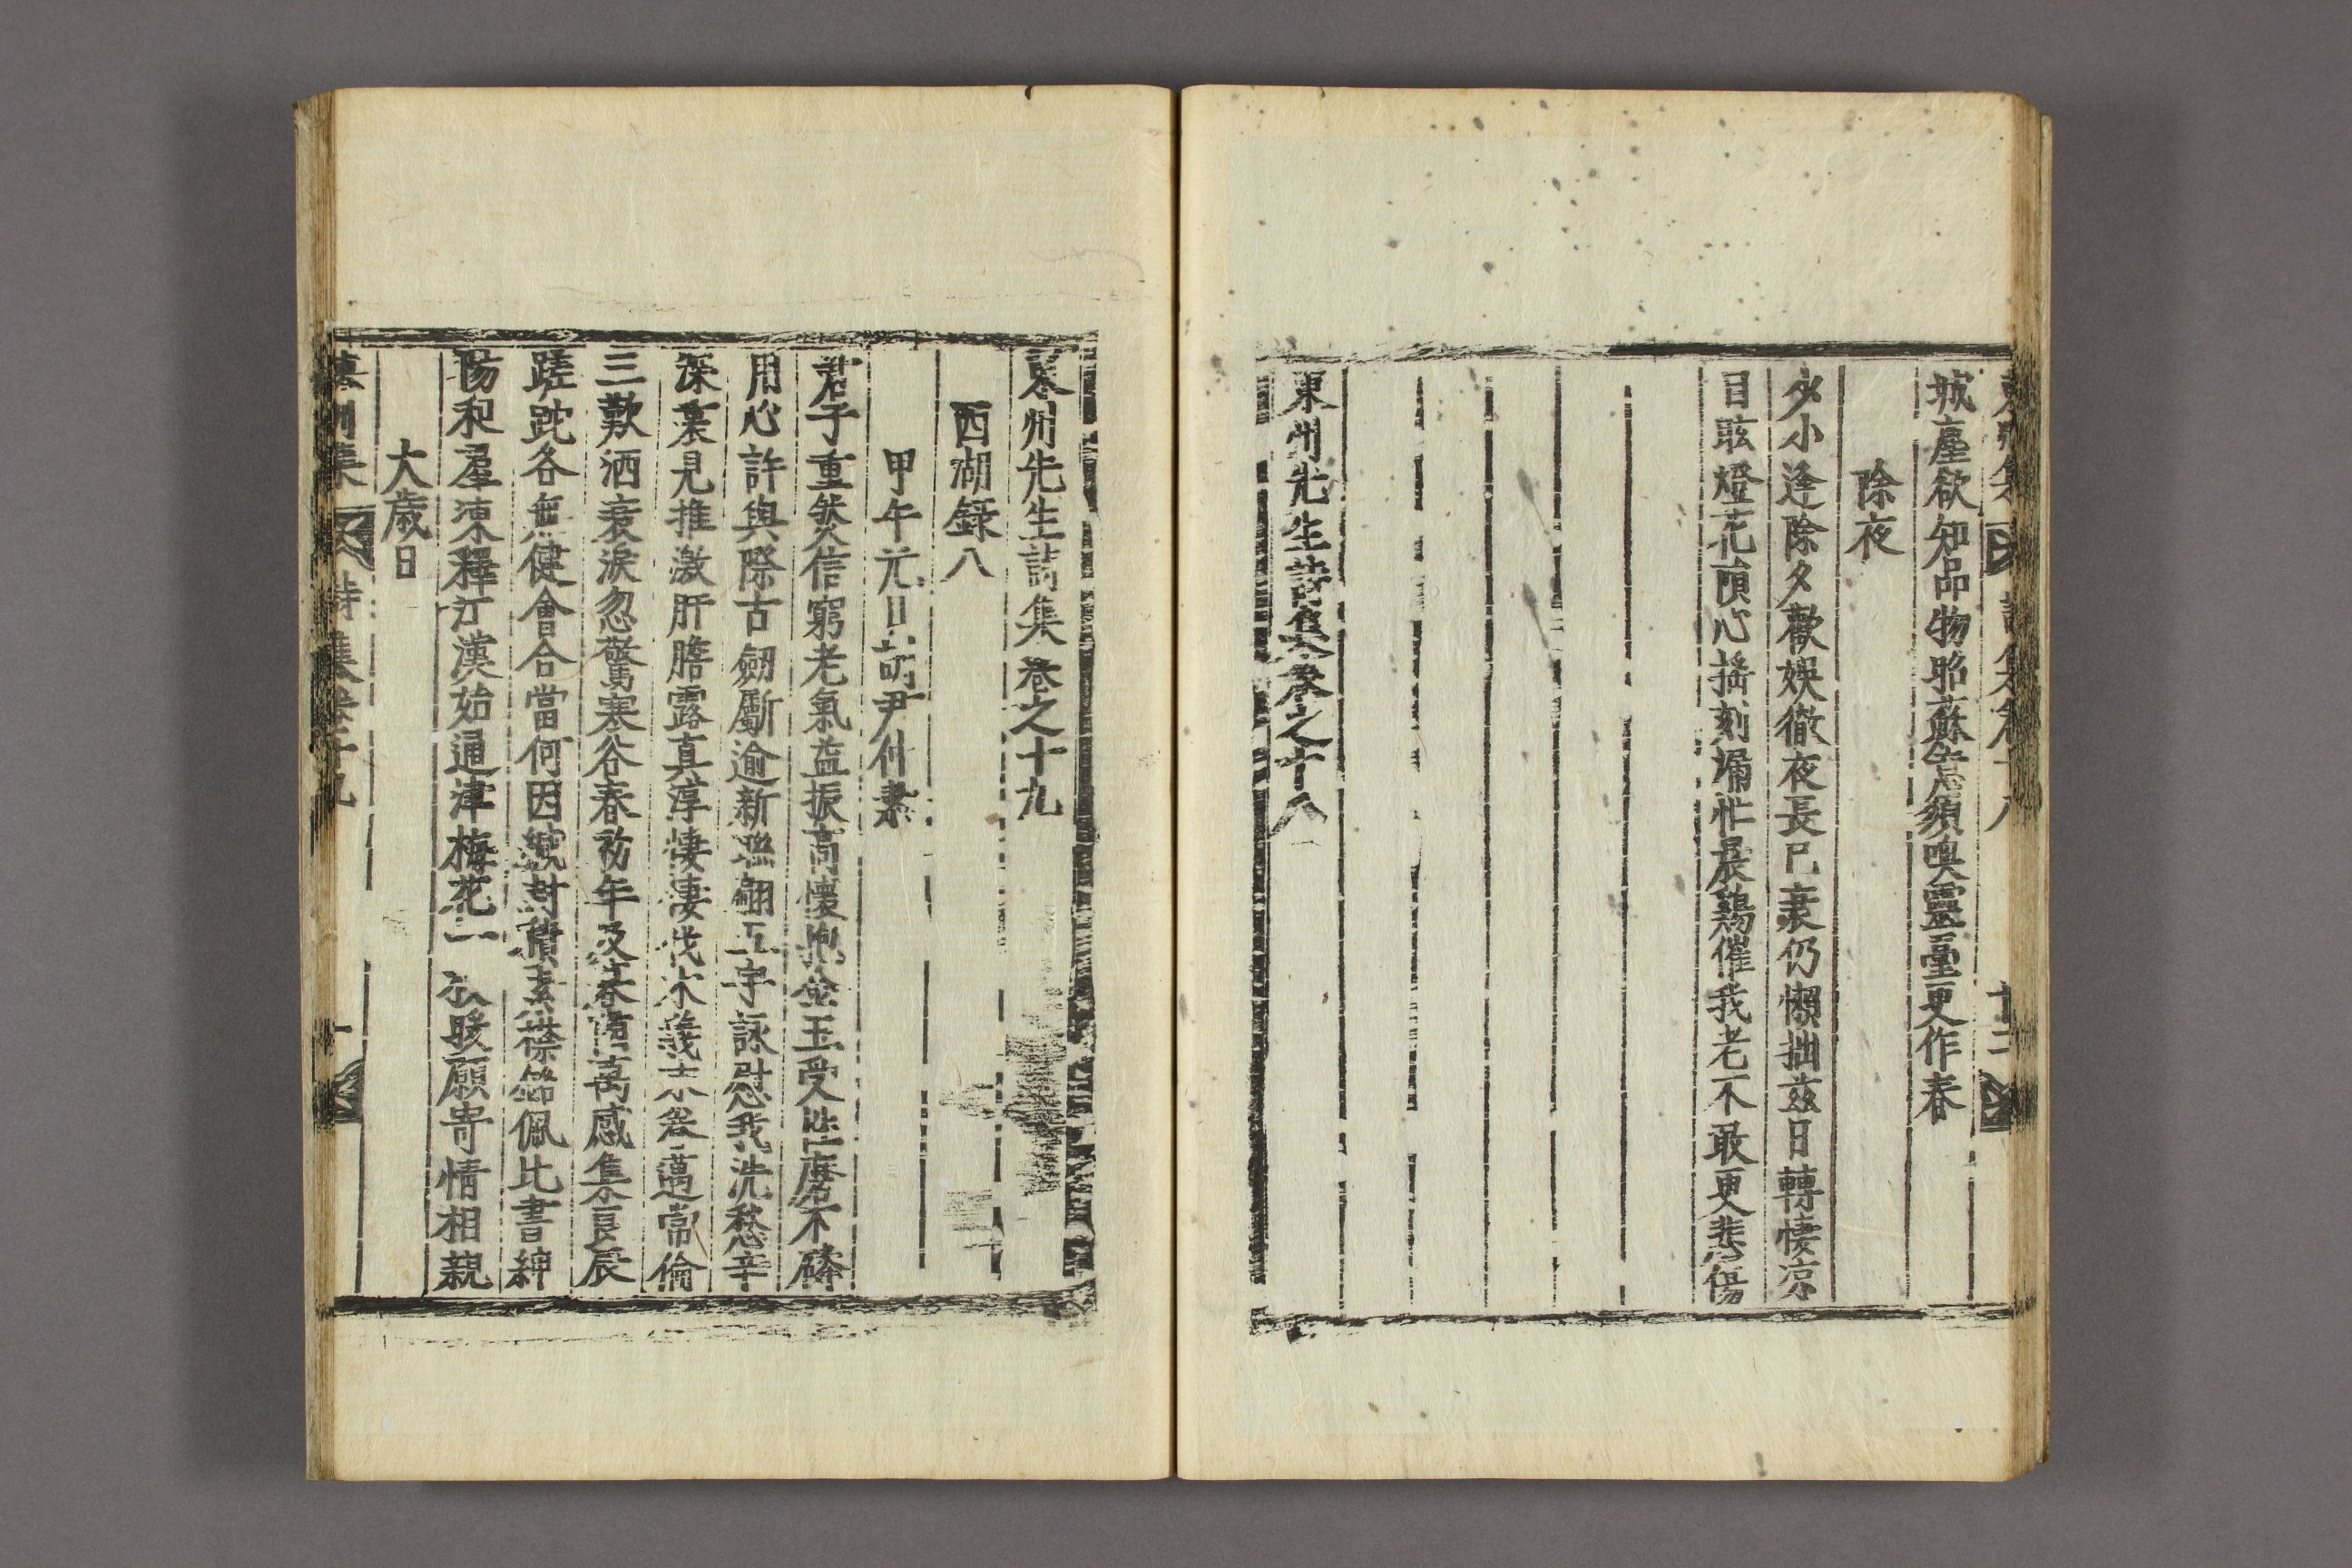 東州集 詩集卷十八 廿二
城塵欲知品物昭蘇急須喚靈臺更作春
除夜
少小逢除夕歡娛徹夜長已衰仍懶拙玆日轉悽涼
目眩燈花頃心搖刻漏忙晨鷄催我老不敢更悲傷
東州先生詩集卷之十八
東州先生詩集卷之十九
西湖錄八
甲午元日 尹仲素
君子重然信窮老氣益振高懷抱金玉受性磨不磷
用心許與際古劒斸逾新聯翩五字詠慰我洗愁辛
深裏見推激肝膽露眞淳悽悽伐木義 邁常倫
三歎洒衰淚忽驚寒谷春初年及 萬感集良辰
蹉跎各無健會合當何因緘封 素襟 佩比書紳
陽和羣凍釋江漢始通津梅花一 暖願寄情相親
大歲日
東州集 詩集卷十九 一